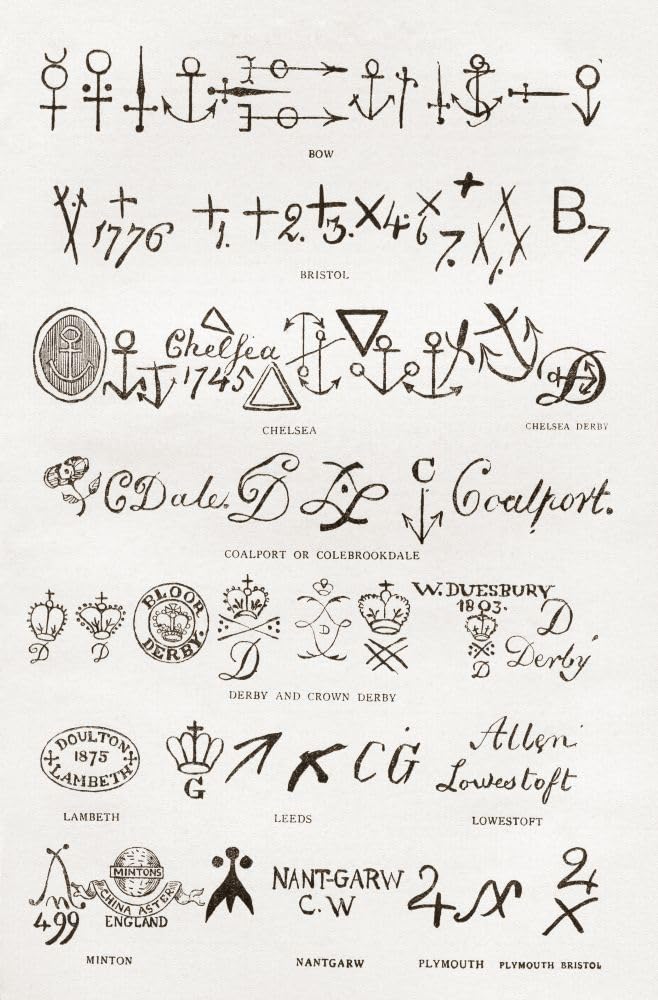 BOW
1776 1. 2. 3. 4. 6 7. 1. B7
BRISTOL
Chelsea
1745
CHELSEA
D
CHELSEA DERBY
CDale. CD C Coalport.
COALPORT OR COLEBROOKDALE
BLOOR
DERBY.
W. DUESBURY
1803.
D D D D D D
Derby
DERBY AND CROWN DERBY
DOULTON
1875
LAMBETH
G
CG
Allen
Lowestoft
LAMBETH
LEEDS
LOWESTOFT
MINTONS
CHINA ASTER
ENGLAND
499
NANT-GARW
C.W
MINTON
NANTGARW
PLYMOUTH
PLYMOUTH BRISTOL